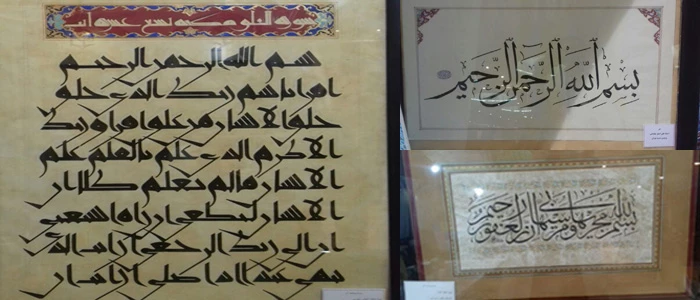 بسم الله الرحمن الرحيم
اقرا باسم ربك الذي خلق
خلق الانسان من علق اقرا و ربك
الاكرم الذي علم بالقلم علم
الانسان ما لم يعلم كلا ان
الانسان ليطغى ان راه استغنى
ان الى ربك الرجعى ارايت الذي
ينهى عبدا اذا صلى ارايت ان
بِسْمِ اللَّهِ الرَّحْمَنِ الرَّحِيمِ
بسم الله مجريها ومرسيها ان ربي لغفور رحيم